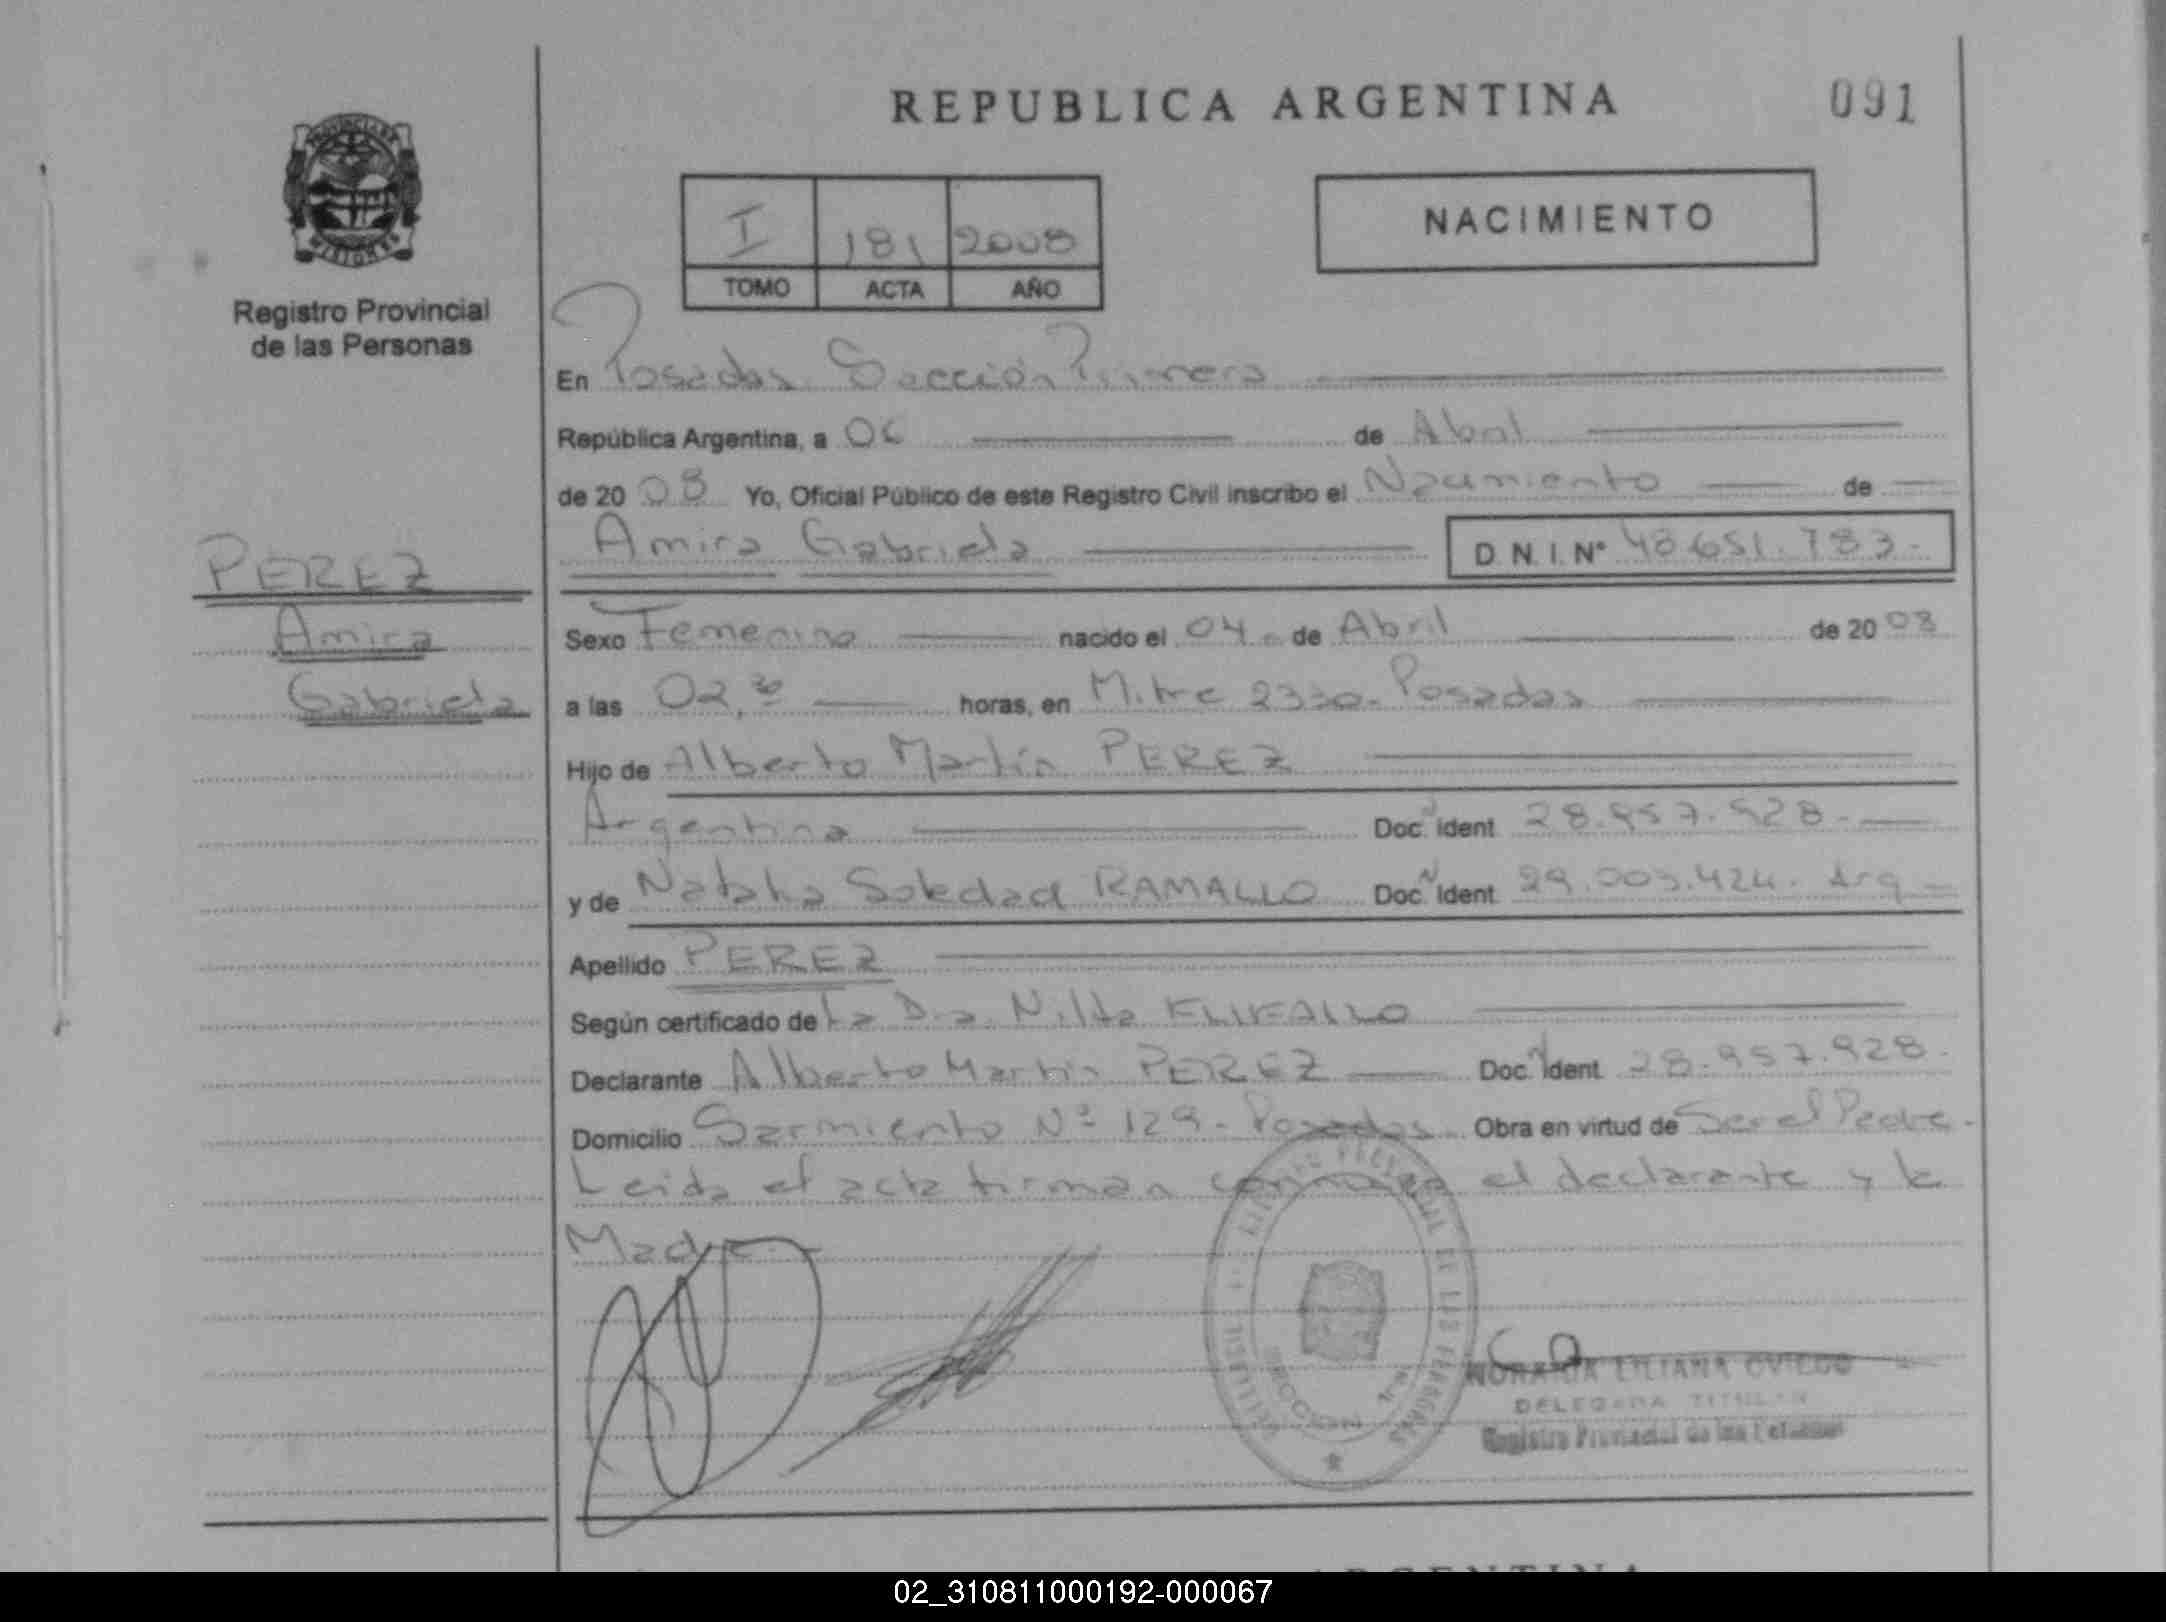 REPUBLICA ARGENTINA
091
PROVINCIA DE
MISIONES
Registro Provincial
de las Personas
I 181 2008
TOMO ACTA AÑO
NACIMIENTO
En Posadas Sección Primera
República Argentina, a 06 de Abril
de 2008 Yo, Oficial Público de este Registro Civil inscribo el Nacimiento de
Amira Gabriela D.N.I.N° 48.651.783.-
PEREZ
Amira
Gabriela
Sexo Femenino nacido el 04 de Abril de 2008
a las 02,30 horas, en Mitre 2330- Posadas
Hijo de Alberto Martín PEREZ
Argentina Doc. Ident 28.957.928.-
y de Natalia Soledad RAMALLO Doc. Ident 29.003.424. Arg
Apellido PEREZ
Según certificado de La Dra. Nilda
Declarante Alberto Martín PEREZ Doc. Ident 28.957.928.
Domicilio Sarmiento Nº 129- Posadas Obra en virtud de Ser el Padre-
Leida el acta firman conmigo el declarante y la
Madre.
NORMA LILIANA OVIEDO
DELEGADA TITULAR
Registro Provincial de las Personas
ARGENTINA
02_310811000192-000067